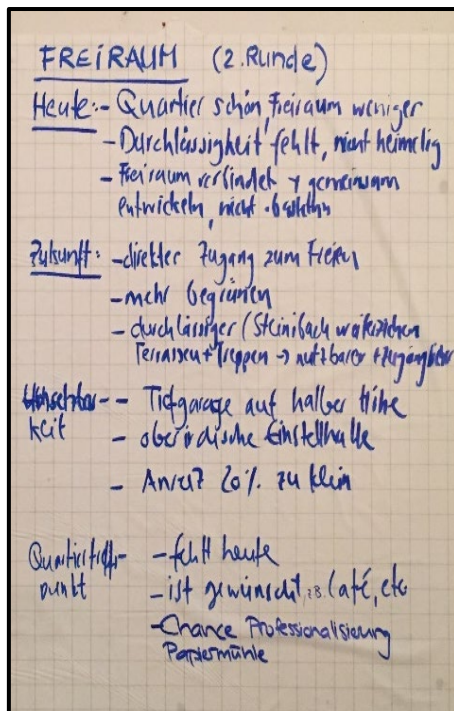 FREIRAUM (2. Runde)
Heute: - Quartier schön, Freiraum weniger
- Durchlässigkeit fehlt, nicht heimelig
- Freiraum verbindet → gemeinsam
entwickeln, nicht
Zukunft: - direkter Zugang zum Freien
- mehr begrünen
- durchlässiger (Steinibach weiterziehen
Terrassen + Treppen → nutzbarer + zugänglicher
Umsetzbar- - Tiefgarage auf halber Höhe
keit - oberirdische Einstellhalle
- Anreiz 20% zu klein
Quartiertreff- - fehlt heute
punkt - ist gewünscht, z.B. Café, etc
- Chance Professionalisierung
Papiermühle